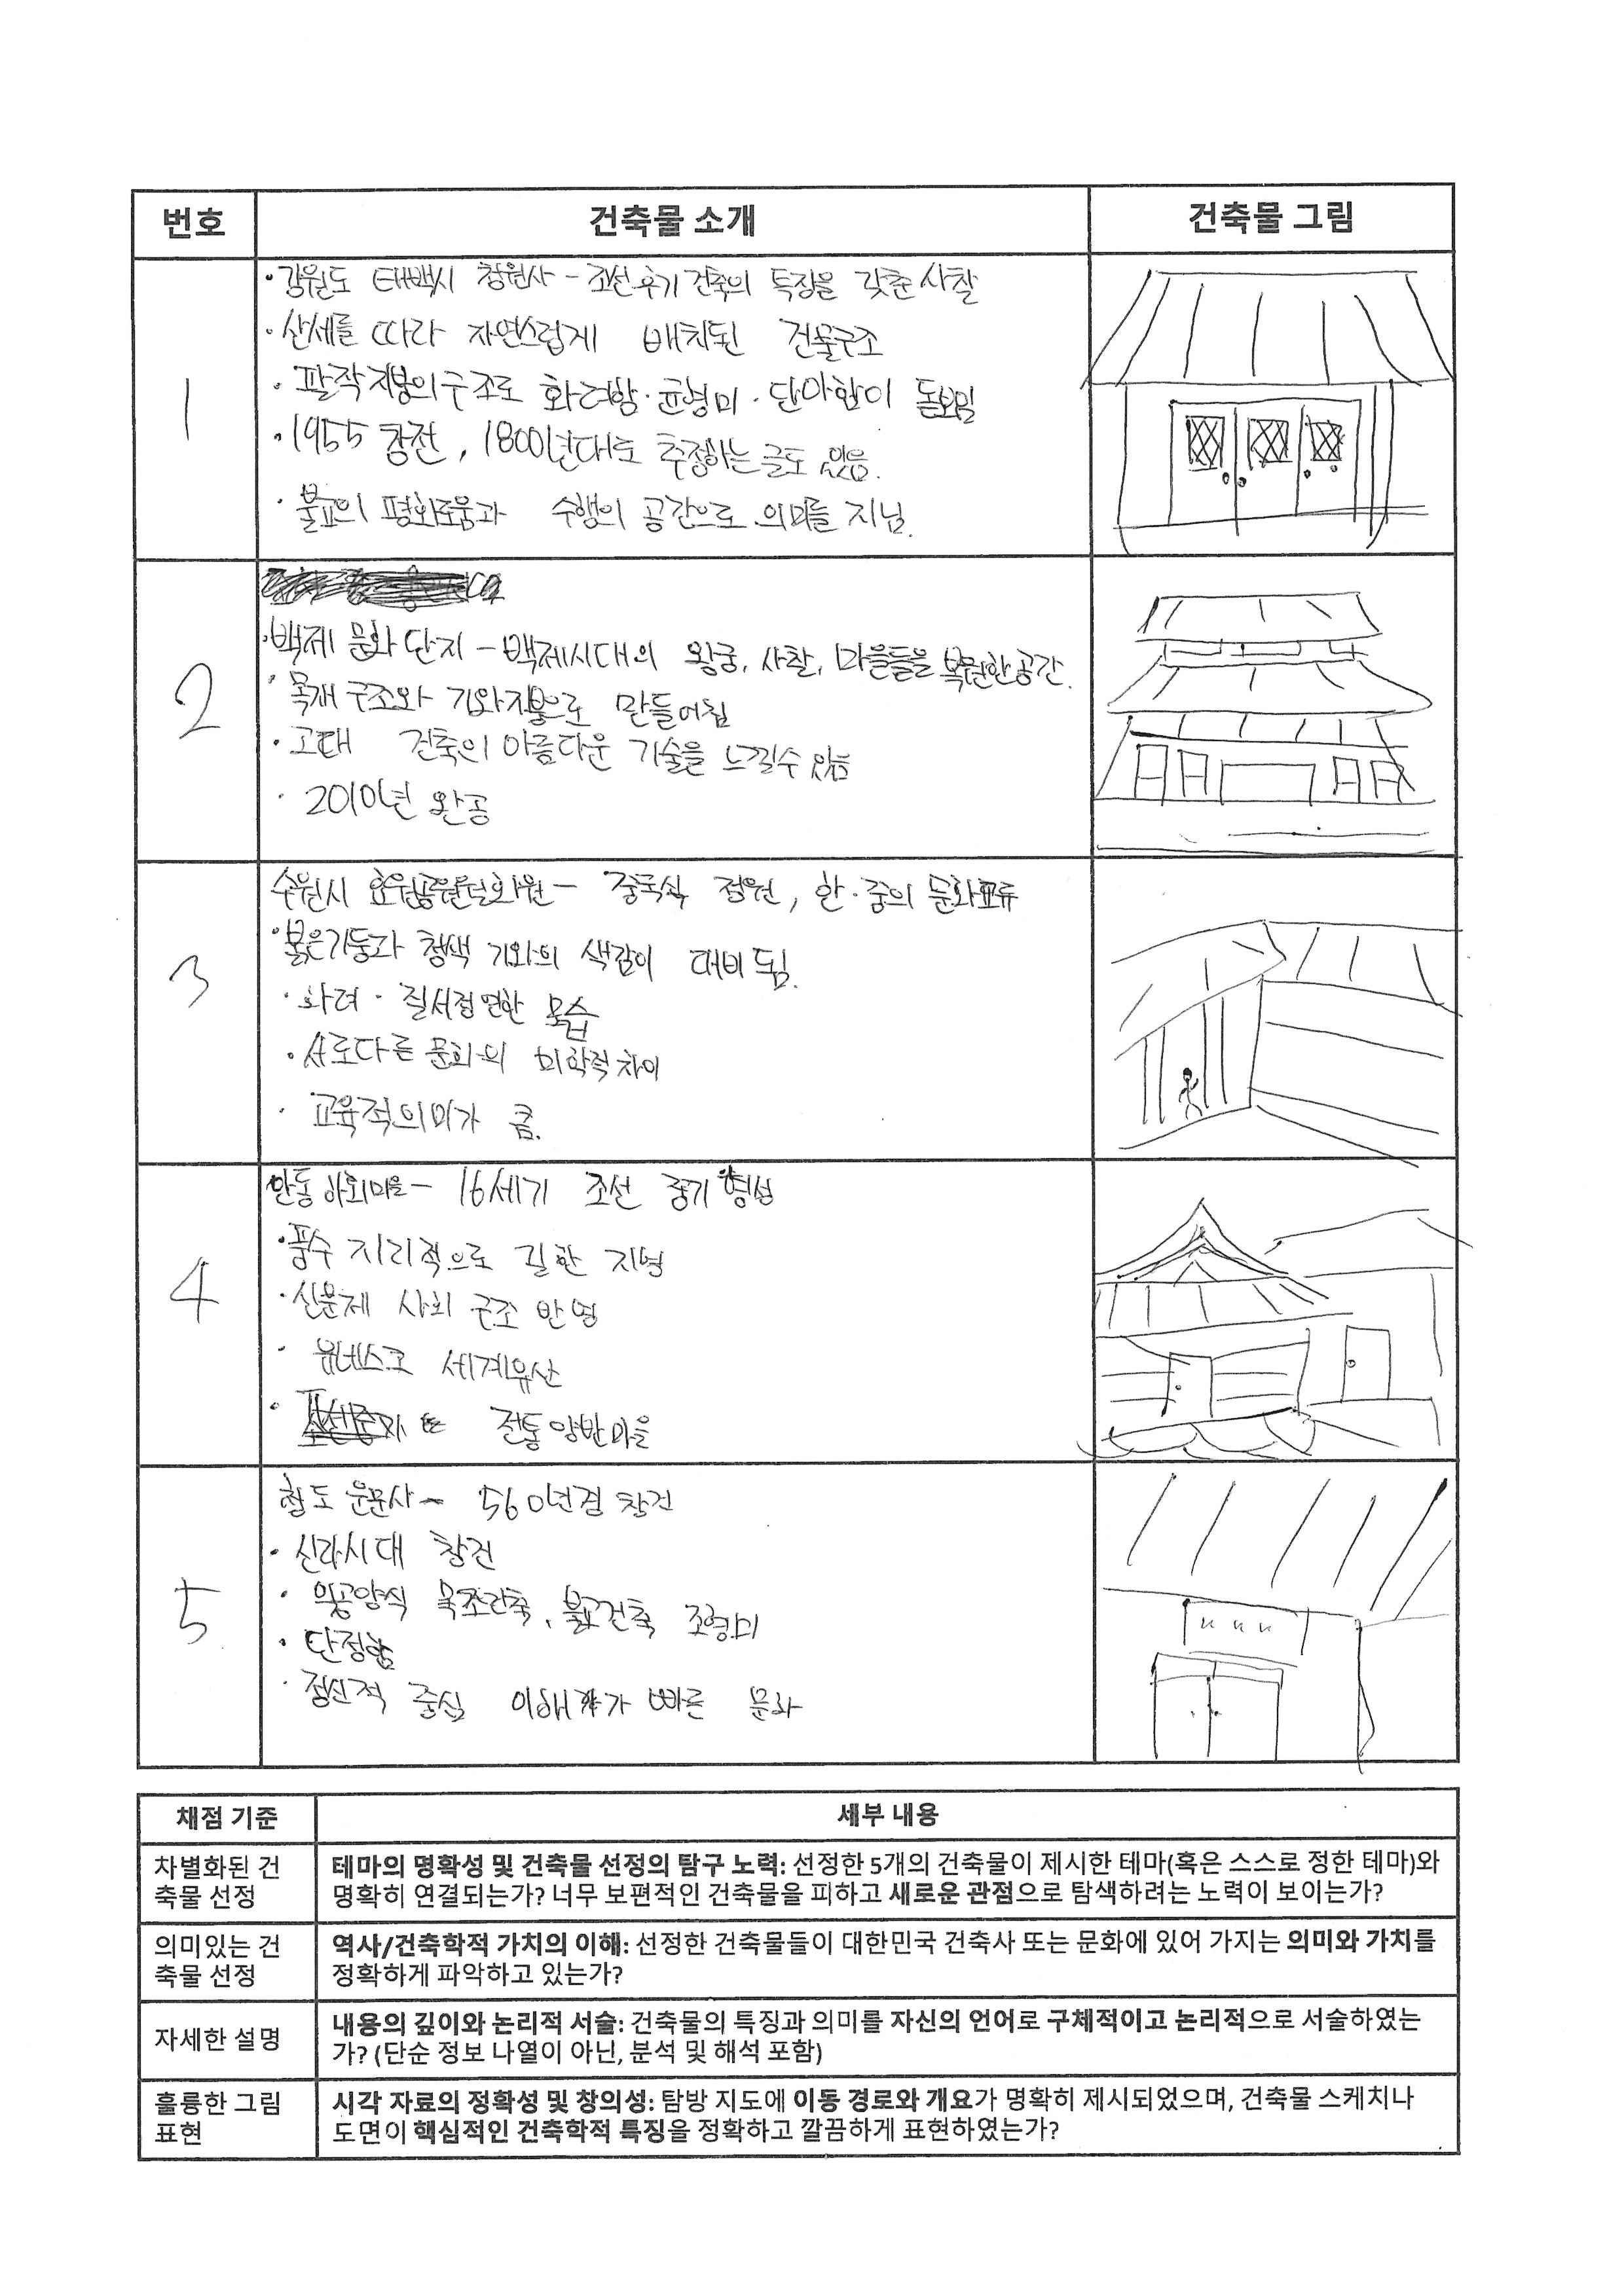 번호 건축물 소개 건축물 그림
1
· 강원도 태백시 청원사 - 조선 후기 건축의 특징을 갖춘 사찰
· 산세를 따라 자연스럽게 배치된 건물구조
· 팔작지붕의 구조로 화려함·균형미·단아함이 돋보임
· 1955 창전, 1800년대로 추정하는 글도 있음.
· 불교의 평화로움과 수행의 공간으로 의미를 지님.
2
· 백제 문화 단지 - 백제시대의 왕궁, 사찰, 마을들을 복원한 공간.
· 목재 구조와 기와지붕으로 만들어짐
· 고대 건축의 아름다운 기술을 느낄수 있음
· 2010년 완공
3
수원시 효원공원 월화원 - 중국식 정원, 한·중의 문화교류
· 붉은기둥과 청색 기와의 색감이 대비됨.
· 화려·질서정연한 모습
· 서로다른 문화의 미학적 차이
· 교육적의미가 큼.
4
안동 하회마을 - 16세기 조선 중기 형성
· 풍수 지리적으로 길한 지형
· 신분제 사회 구조 반영
· 유네스코 세계유산
· 전통양반마을
5
청도 운문사 - 560년경 창건
· 신라시대 창건
· 목조건축, 불교건축 조형미
· 단정함
· 정신적 중심 이해가 빠른 문화
채점 기준 세부 내용
차별화된 건
축물 선정
테마의 명확성 및 건축물 선정의 탐구 노력: 선정한 5개의 건축물이 제시한 테마(혹은 스스로 정한 테마)와
명확히 연결되는가? 너무 보편적인 건축물을 피하고 새로운 관점으로 탐색하려는 노력이 보이는가?
의미있는 건
축물 선정
역사/건축학적 가치의 이해: 선정한 건축물들이 대한민국 건축사 또는 문화에 있어 가지는 의미와 가치를
정확하게 파악하고 있는가?
자세한 설명
내용의 깊이와 논리적 서술: 건축물의 특징과 의미를 자신의 언어로 구체적이고 논리적으로 서술하였는
가? (단순 정보 나열이 아닌, 분석 및 해석 포함)
훌륭한 그림
표현
시각 자료의 정확성 및 창의성: 탐방 지도에 이동 경로와 개요가 명확히 제시되었으며, 건축물 스케치나
도면이 핵심적인 건축학적 특징을 정확하고 깔끔하게 표현하였는가?